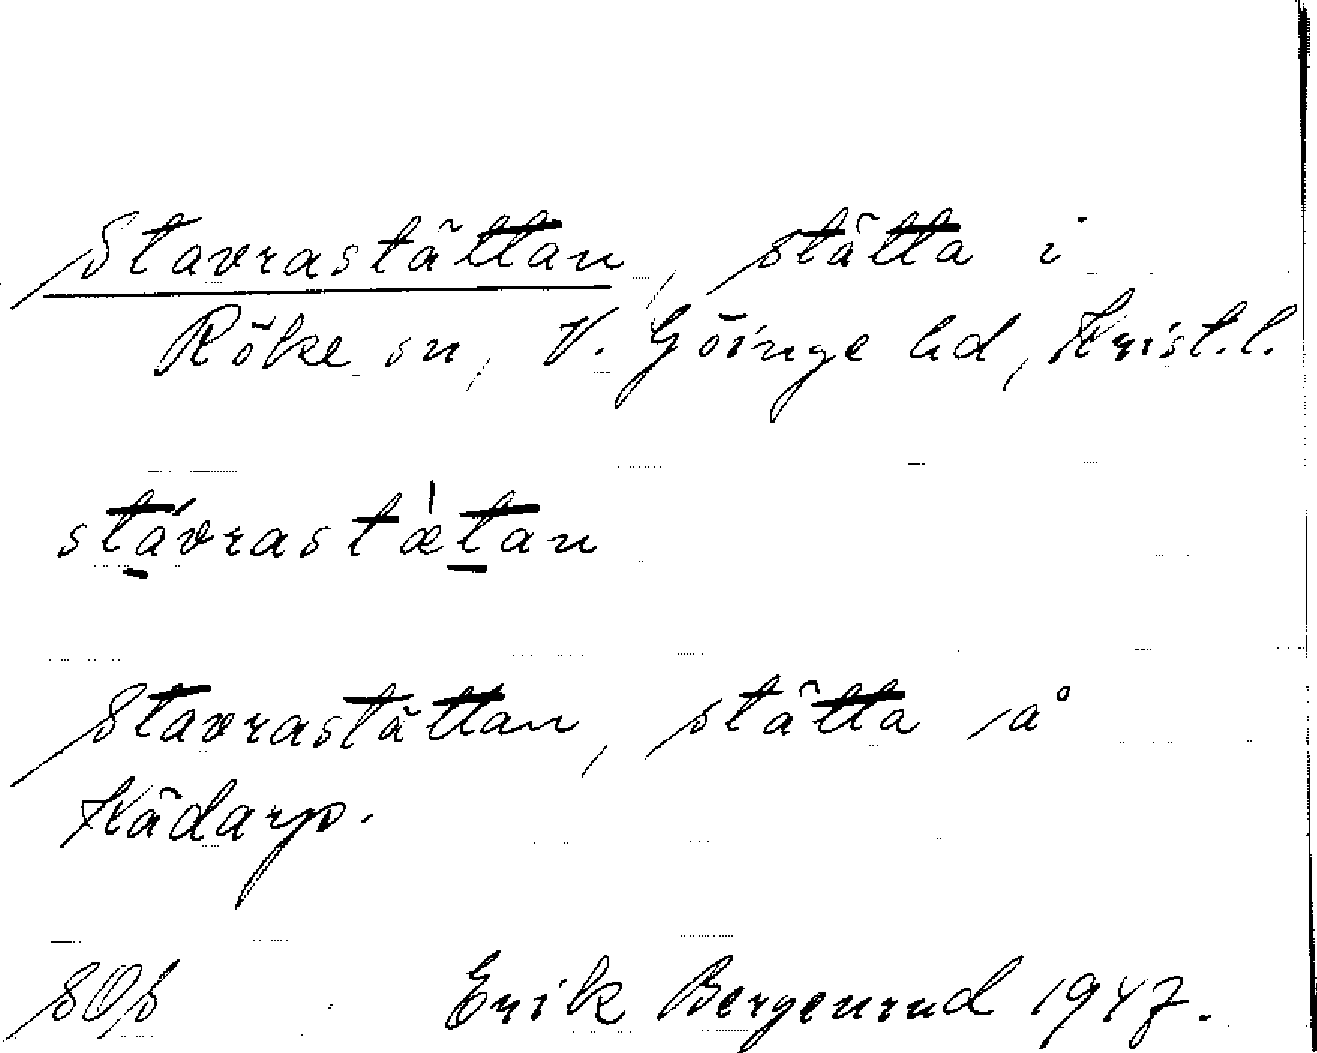 Stavrastättan, stätta i
Röke sn, V. Göinge hd, Krist.l.
stávrastæ̀tan
Stavrastättan, stätta på
Kädarp.
SOÞ Erik Bergenrud 1947.